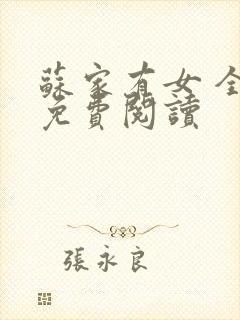 蘇家有女 全
免費閱讀
張永良